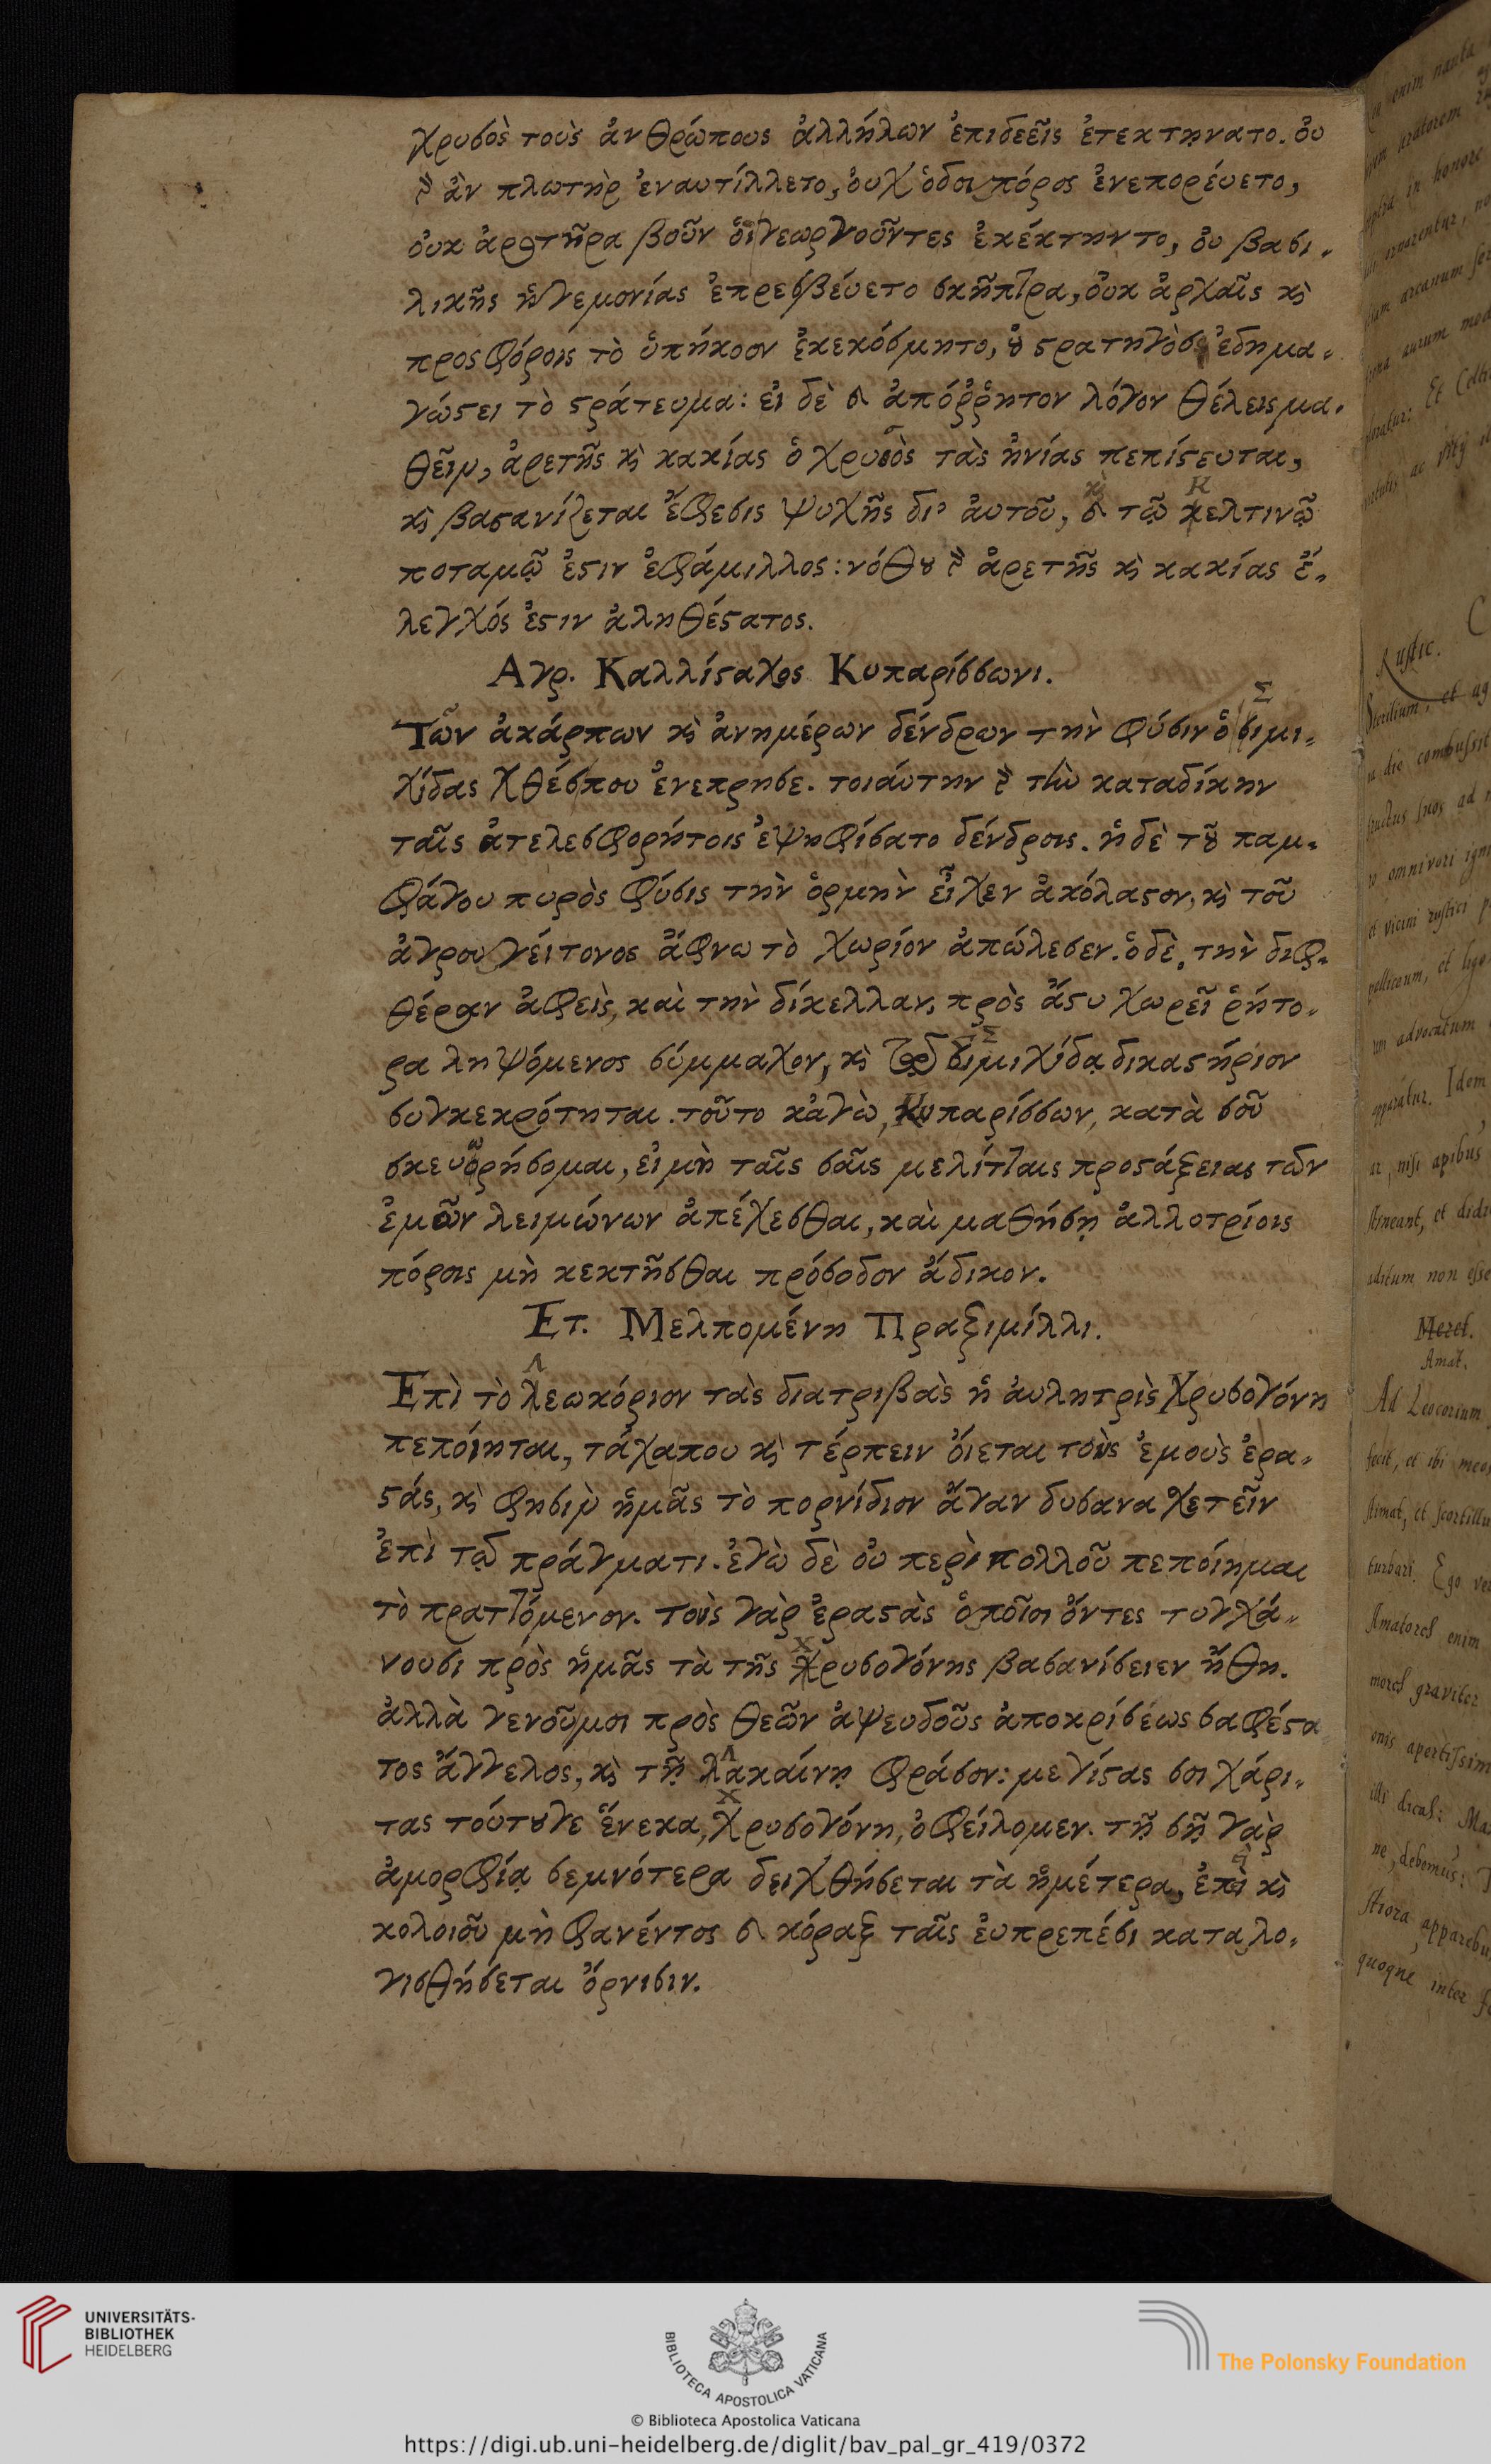 χρυσὸς τοὺς ἀνθρώπους ἀλλήλων ἐπιδεεῖς ἐτεκτηνατο. οὐ
γὰρ ἂν πλωτὴρ ἐναυτίλλετο, οὐχ ὁδοιπόρος ἐνεπορέυετο,
οὐκ ἀροτῆρα βοῦν ὁι γεωργοῦντες ἐκέκτηντο, οὐ βασι-
λικῆς ἡγεμονίας ἐπρεσβέυετο σκῆπτρα, οὐκ ἀρχαῖς καὶ
προσφόροις τὸ ὑπήκοον ἐκεκόσμητο, οὐ στρατηγὸς ἐδημα-
γώγει τὸ στράτευμα: εἰ δὲ καὶ ἀπόῤῥητον λόγον θέλεις μα-
θεῖν, ἀρετῆς καὶ κακίας ὁ χρυσὸς τὰς ἡνίας πεπίστευται,
καὶ βασανίζεται ἔφεσις ψυχῆς δι' ἀυτοῦ, καὶ τῷ κελτινῷ
ποταμῷ ἐστιν ἐφάμιλλος: νόθου γὰρ ἀρετῆς καὶ κακίας ἔ-
λεγχός ἐστιν ἀληθέστατος.
Αγρ. Καλλίσταχος Κυπαρίσσωνι.
Τῶν ἀκάρπων καὶ ἀνημέρων δένδρων τὴν φύσιν ὁ σιμι-
χίδας χθέσπου ἐνεπρησε. τοιάυτην γὰρ τὴν καταδίκην
ταῖς ἀτελεσφορήτοις ἐψηφίσατο δένδροις. ἡ δὲ τοῦ παμ-
φάγου πυρὸς φύσις τὴν ὁρμὴν εἶχεν ἀκόλαστον, καὶ τοῦ
ἀγρου γέιτονος ἄφνω τὸ χωρίον ἀπώλεσεν. ὁ δὲ, τὴν διφ-
θέραν ἀφεὶς, καὶ τὴν δίκελλαν, πρὸς ἄστυ χωρεῖ ῥήτο-
ρα ληψόμενος σύμμαχον, καὶ τῷ σιμιχίδᾳ δικαστήριον
συγκεκρότηται. τοῦτο κἀγὼ, Κυπαρίσσων, κατὰ σοῦ
σκευωρήσομαι, εἰ μὴ ταῖς σαῖς μελίτταις προστάξειας τῶν
ἐμῶν λειμώνων ἀπέχεσθαι, καὶ μαθήσῃ ἀλλοτρίοις
πόροις μὴ κεκτῆσθαι πρόσοδον ἄδικον.
Ετ. Μελπομένη Πραξιμίλλι.
Επὶ τὸ λεωκόριον τὰς διατριβὰς ἡ ἀυλητρὶς Χρυσογόνη
πεπόιηται, τάχαπου καὶ τέρπειν ὄιεται τοὺς ἐμοὺς ἐρα-
στάς, καὶ φησὶν ἡμᾶς τὸ πορνίδιον ἄγαν δυσαναχετεῖν
ἐπὶ τῷ πράγματι. ἐγὼ δὲ οὐ περὶ πολλοῦ πεπόιημαι
τὸ πραττόμενον. τοὺς γὰρ ἐραστὰς ὁποῖοι ὄντες τυγχά-
νουσι πρὸς ἡμᾶς τὰ τῆς Χρυσογόνης βασανίσειεν ἤθη.
ἀλλὰ γενοῦμοι πρὸς θεῶν ἀψευδοῦς ἀποκρίσέως σαφέστα
τος ἄγγελος, καὶ τῇ λακαίνῃ φράσον: μεγίστας σοι χάρι-
τας τόυτουγε ἕνεκα, Χρυσογόνη, ὀφείλομεν. τῇ σῇ γὰρ
ἀμορφίᾳ σεμνότερα δειχθήσεται τὰ ἡμέτερα, ἐπεὶ καὶ
κολοιοῦ μὴ φανέντος καὶ κόραξ ταῖς ἐυπρεπέσι καταλο-
γισθήσεται ὄρνισιν.
Rustic.
Meret.
Amat.
Ad Leocorium
UNIVERSITÄTS-
BIBLIOTHEK
HEIDELBERG
BIBLIOTECA APOSTOLICA VATICANA
The Polonsky Foundation
© Biblioteca Apostolica Vaticana
https://digi.ub.uni-heidelberg.de/diglit/bav_pal_gr_419/0372